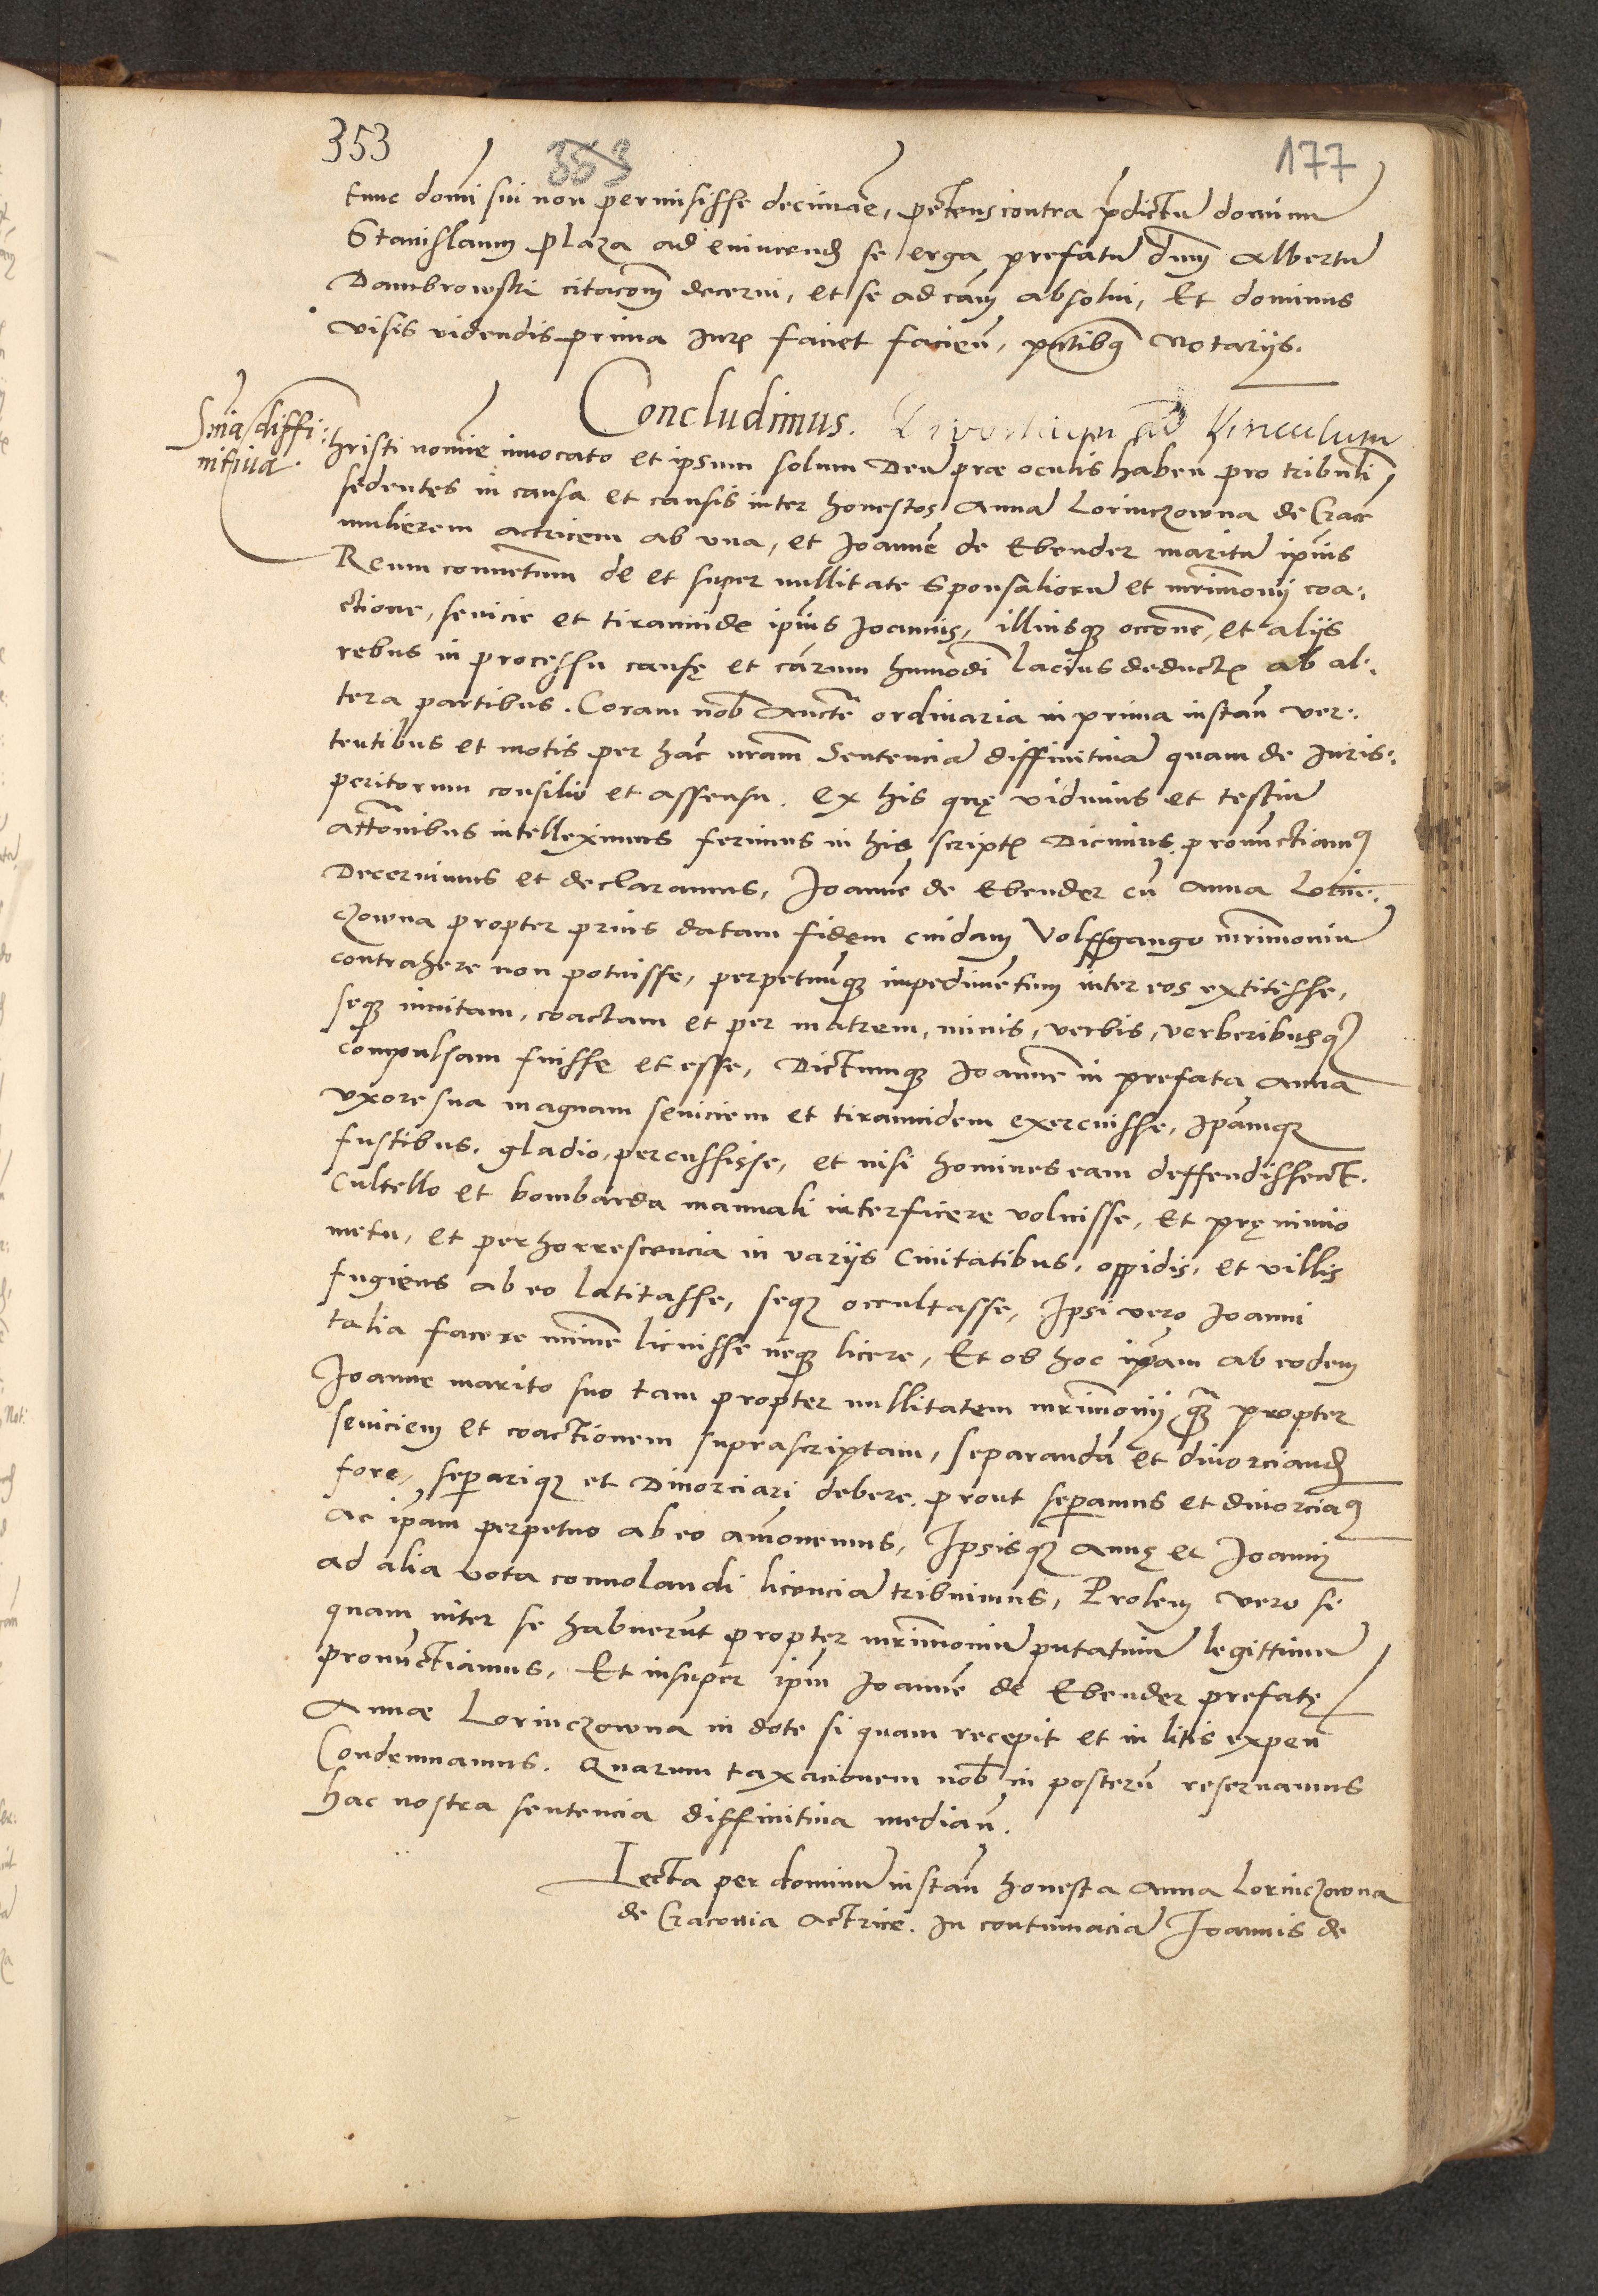 353 353 177
tunc domi sui non permisisse decimare, petens contra pdictu dominu
Stanislaum Plaza ad euincend se erga prefatu dnm Albertu
Dambrowski citacom decerni, et se ad cam absolui, Et dominus
visis videndis prima Jur faciet facien, pntibus Notarijs.
Concludimus. Divortium ad Vinculum
Snia diffi:
nitiua.
hristi nomine inuocato et ipsum solum Deu præ oculis haben pro tribunli
sedentes in causa et causis inter honestos Anna Lorinczowna de Crac
mulierem actricem ab vna, et Joanne de Ebender maritu ipius
Reum conuentum de et super nullitate Sponsalioru et mrimonij coa:
ctione, seuicie et tirannide ipius Joannis, illiusque occone, et alijs
rebus in processu causę et carum humodi lacius deduct ab al:
tera partibus. Coram nob Aucte ordinaria in prima instan ver:
tentibus et motis per hac nram Sentencia diffinitiua quam de Juris:
peritorum consilio et assensu. ex his quę vidimus et testiu
attonibus intelleximus ferimus in his script Dicimus, pronunctiamus
Decernimus et declaramus, Joanne de Ebender cu Anna Lorin:
czowna propter prius datam fidem cuidam Volffgango mrimoniu
contrahere non potuisse, perpetuuque impedimentum inter eos extitisse,
seque inuitam, coactam et per matrem, minis, verbis, verberibusque
compulsam fuisse et esse, Dictumque Joanne in prefata Anna
vxore sua magnam seuiciem et tirannidem exercuisse, Ipamque
fustibus, gladio, percussisse, et nisi homines eam deffendissent.
Cultello et bombarda manuali interficere voluisse, et prę nimio
metu, et perhorrescencia in varijs Ciuitatibus, oppidis, et villis
fugiens ab eo latitasse, seque occultasse, Ipsi vero Joanni
talia facere minime licuisse neque licere, Et ob hoc ipam ab eodem
Joanne marito suo tam propter nullitatem mrimonij quam propter
seuiciem et coactionem suprascriptam, separanda et diuorciand
fore, separique et Diuorciari debere, prout separamus et diuorciamus
Ac ipam perpetuo ab eo amouemus, Ipsisque Annę et Joanni
ad alia vota conuolandi licencia tribuimus, Prolem vero si
quam inter se habuerunt propter mrimoniu putatiuu legittimu
pronunctiamus, Et insuper ipm Joanne de Ebender prefatę
Annæ Lorinczowna in dote si quam recepit et in litis expen
Condemnamus. Quarum taxacionem nob in posteru reseruamus
hac nostra sentencia diffinitiua median.
Lecta per dominu instan honesta Anna Lorinczowna
de Cracouia Actrice. In contumacia Joannis de